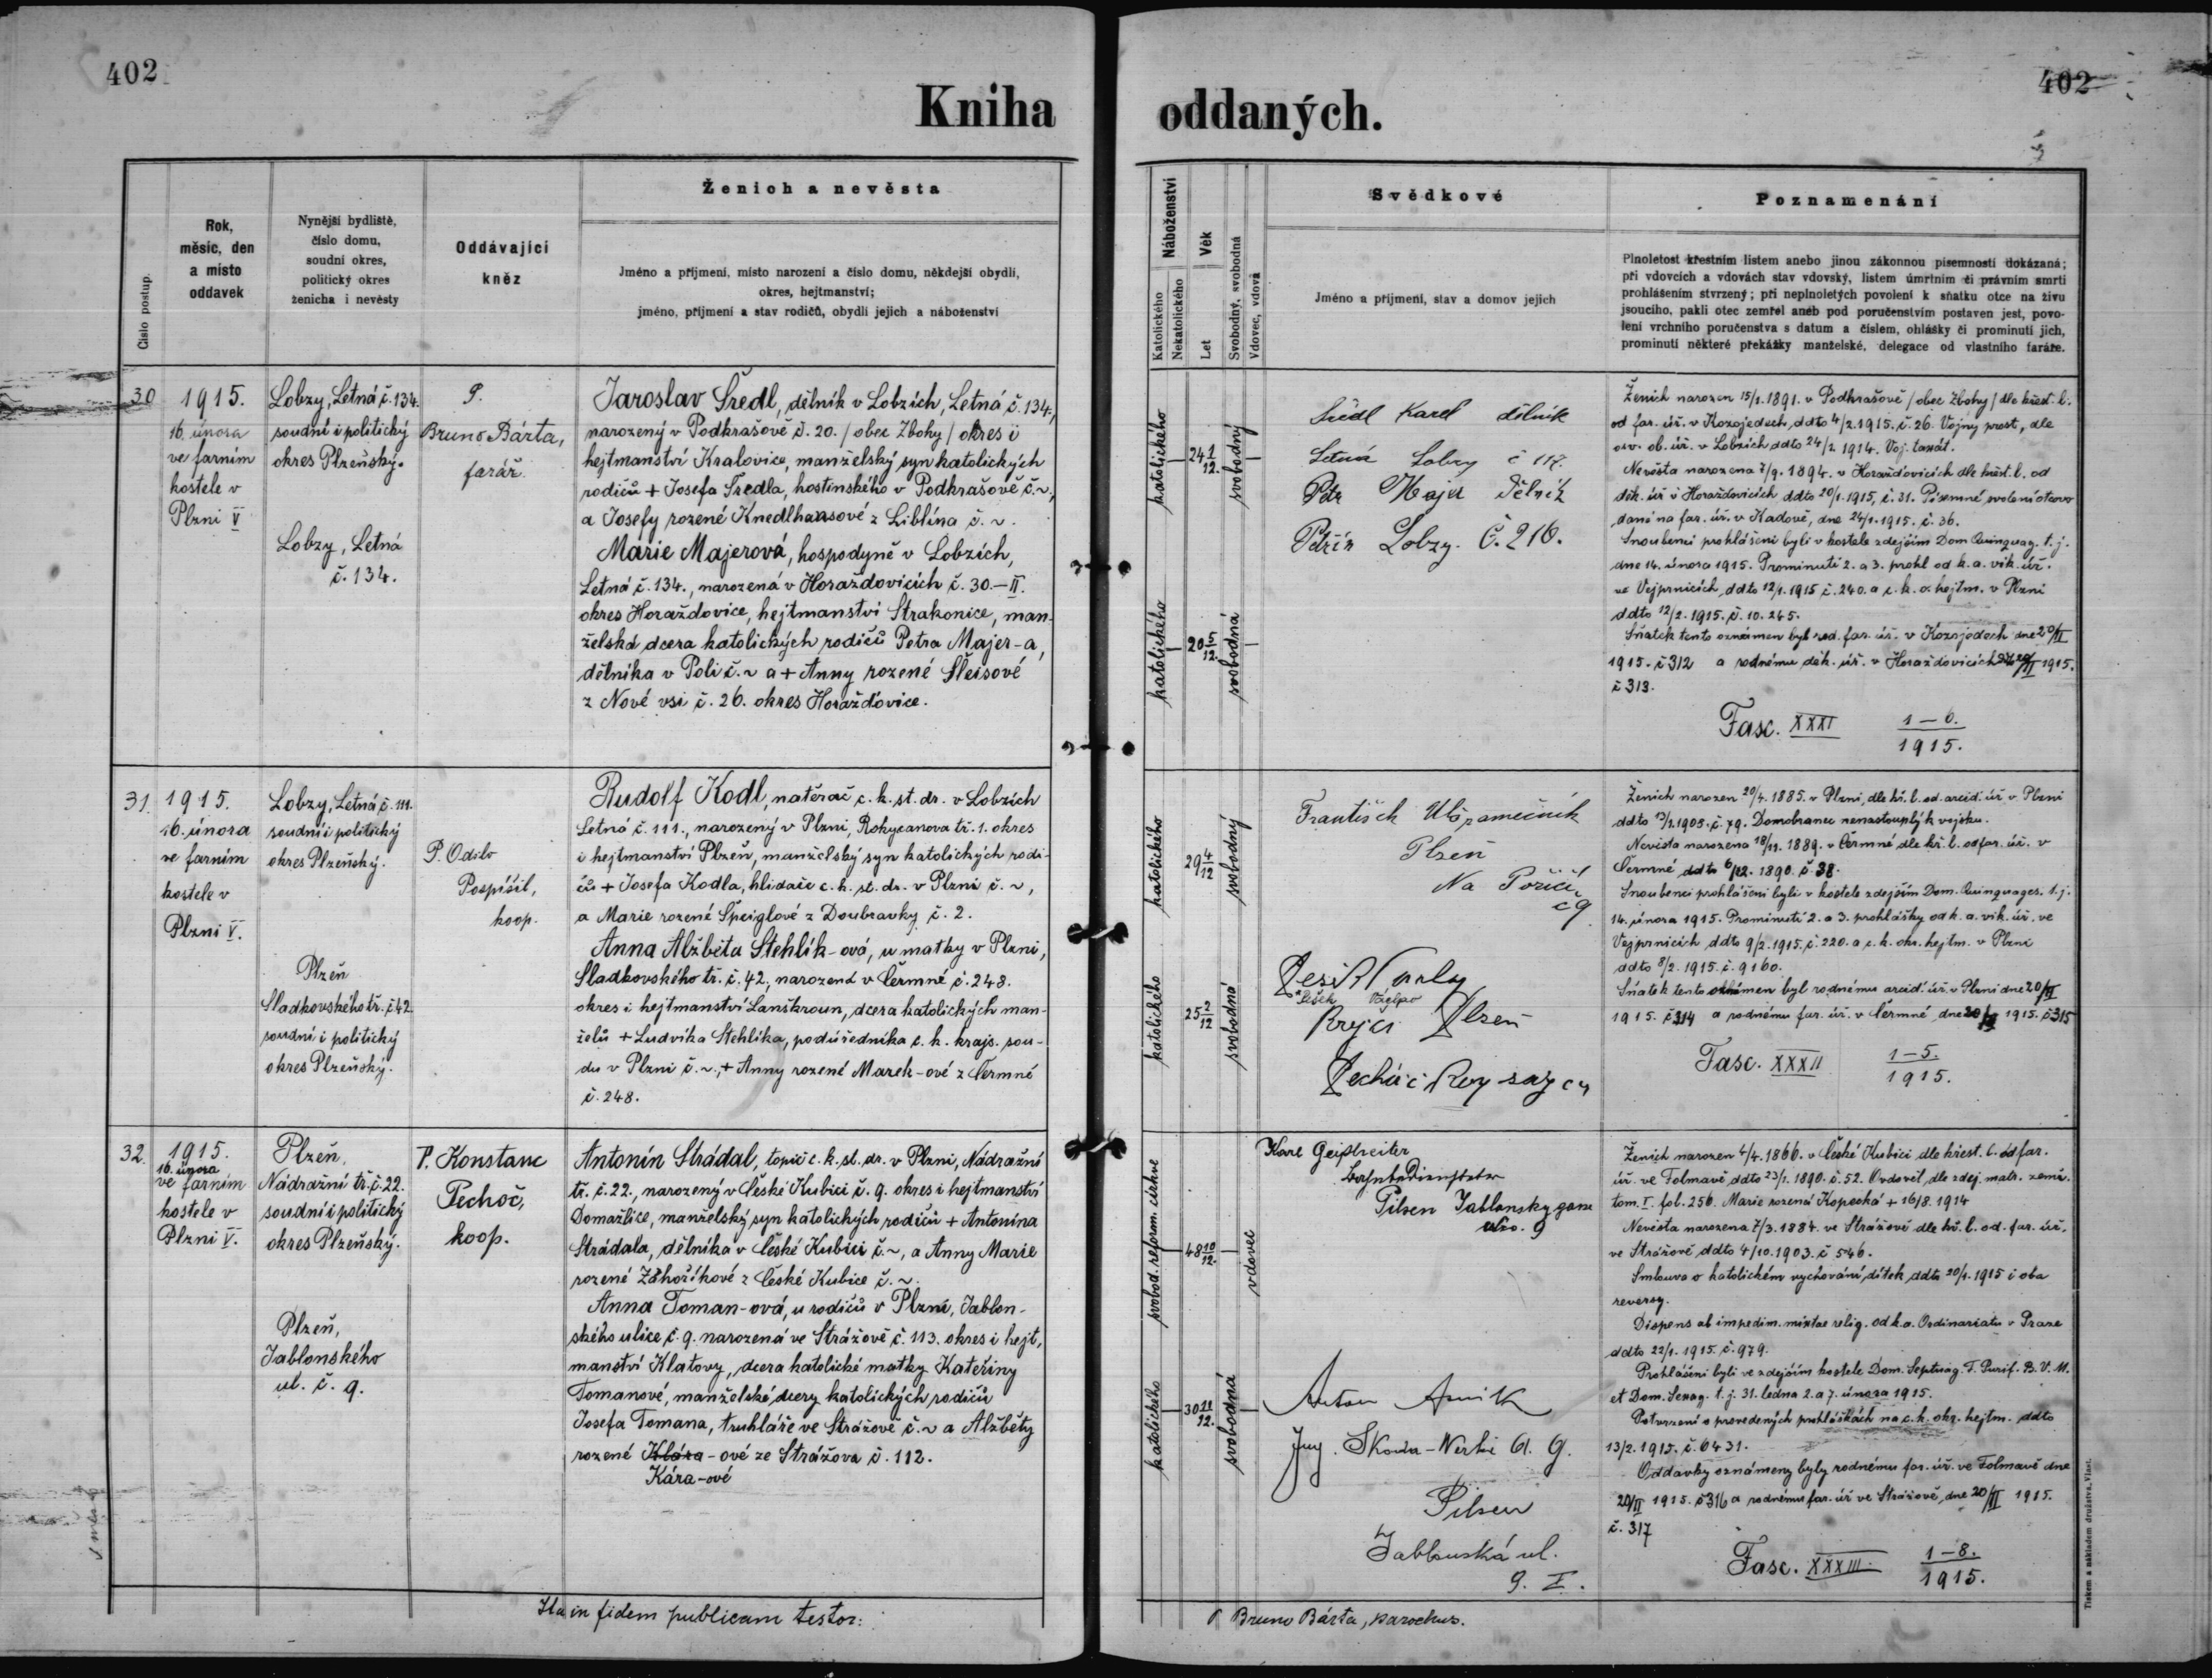 402
402
Kniha oddaných.
Číslo postup.
Rok,
měsíc, den
a místo
oddavek
Nynější bydliště,
číslo domu,
soudní okres,
politický okres
ženicha i nevěsty
Oddávající
kněz
Ženich a nevěsta
Jméno a příjmení, místo narození a číslo domu, někdejší obydlí,
okres, hejtmanství;
jméno, příjmení a stav rodičů, obydlí jejich a náboženství
Náboženství
Katolického
Nekatolického
Věk
Let
Svobodný, svobodná
Vdovec, vdova
Svědkové
Jméno a příjmení, stav a domov jejich
Poznamenání
Plnoletost křestním listem anebo jinou zákonnou písemností dokázaná;
při vdovcích a vdovách stav vdovský, listem úmrtním či právním smrti
prohlášením stvrzený; při neplnoletých povolení k sňatku otce na živu
jsoucího, pakli otec zemřel aneb pod poručenstvím postaven jest, povo-
lení vrchního poručenstva s datum a číslem, ohlášky či prominutí jich,
prominutí některé překážky manželské, delegace od vlastního faráře.
30
1915.
16. února
ve farním
kostele v
Plzni V
Lobzy, Letná č. 134.
soudní i politický
okres Plzeňský.
Lobzy, Letná
č. 134.
P.
Bruno Bárta,
farář.
Jaroslav Šredl, dělník v Lobzích, Letná č. 134.,
narozený v Podkrašově č. 20. / obec Zbohy / okres i
hejtmanství Kralovice, manželský syn katolických
rodičů + Josefa Šredla, hostinského v Podkrašově č. ~,
a Josefy rozené Knedlhansové z Liblína č. ~.
Marie Majerová, hospodyně v Lobzích,
Letná č. 134., narozená v Horažďovicích č. 30.-II.
okres Horažďovice, hejtmanství Strakonice, man-
želská dcera katolických rodičů Petra Majer-a,
dělníka v Poli č. ~ a + Anny rozené Šleisové
z Nové vsi č. 26. okres Horažďovice.
katolického
24 1/12.
svobodný
katolického
20 5/12.
svobodná
Karel dělník
Letná Lobzy č 117.
Petr Majer Dělník
Lobzy. Č. 216.
Ženich narozen 15/1. 1891. v Podkrašově / obec Zbohy / dle křest. l.
od far. úř. v Kozojedech, ddto 4/2. 1915. č. 26. Vojny prost, dle
osv. ob. úř. v Lobzích ddto 24/2 1914. Voj.
Nevěsta narozena 7/9. 1894. v Horažďovicích dle křest. l. od
děk. úř v Horažďovicích ddto 20/1. 1915, č. 31. Písemné svolení otcovo
dané na far. úř. v Kadově, dne 24/1. 1915. č. 36.
Snoubenci prohlášeni byli v kostele zdejším Dom Quinquag. t. j.
dne 14. února 1915. Prominutí 2. a 3. prohl od k. a. vik. úř.
ve Vejprnicích, ddto 12/1. 1915 č. 240. a c. k. o. hejtm. v Plzni
ddto 12/2. 1915. č. 10.245.
Sňatek tento oznámen byl rod. far. úř. v Kozojedech dne 20/II
1915. č 312 a rodnému děk. úř. v Horažďovicích 20/II 1915.
č 313.
Fasc. XXXI 1-6. 1915.
31.
1915.
16. února
ve farním
kostele v
Plzni V.
Lobzy, Letná č. 111.
soudní i politický
okres Plzeňský.
Plzeň
Sladkovského tř. č 42.
soudní i politický
okres Plzeňský.
P. Odilo
Pospíšil,
koop.
Rudolf Kodl, natěrač c. k. st. dr. v Lobzích
Letná č. 111., narozený v Plzni, Rokycanova tř. 1. okres
i hejtmanství Plzeň, manželský syn katolických rodi-
čů + Josefa Kodla, hlídače c. k. st. dr. v Plzni č. ~,
a Marie rozené Špeiglové z Doubravky č. 2.
Anna Alžběta Stehlík-ová, u matky v Plzni,
Sladkovského tř. č. 42., narozená v Čermné č. 248.
okres i hejtmanství Lanškroun, dcera katolických man-
želů + Ludvíka Stehlíka, podúředníka c. k. krajs. sou-
du v Plzni č. ~, + Anny rozené Marek-ové z Čermné
č. 248.
katolického
29 4/12
svobodný
katolického
25 2/12
svobodná
František
Plzeň
Na Poříčí
č 9
Krejčí Plzeň
Ženich narozen 20/4. 1885. v Plzni, dle kř. l. od. arcid. úř v. Plzni
ddto 13/2. 1905. č. 79. Domobranec nenastouplý k vojsku.
Nevěsta narozena 18/11. 1889. v Čermné dle kř. l. od far. úř. v
Čermné ddto 6/12. 1890. č. 38.
Snoubenci prohlášeni byli v kostele zdejším Dom. Quinquages. t. j.
14. února 1915. Prominutí 2. a 3. prohlášky od k. a. vik. úř. ve
Vejprnicích ddto 9/2. 1915, č. 220. a c. k. okr. hejtm. v Plzni
ddto 8/2. 1915. č. 9160.
Sňatek tento oznámen byl rodnému arcid. úř. v Plzni dne 20/II
1915. č 314 a rodnému far. úř. v Čermné dne 20/II 1915. č 315
Fasc. XXXII 1-5. 1915.
32.
1915.
16. února
ve farním
kostele v
Plzni V.
Plzeň,
Nádražní tř. č. 22.
soudní i politický
okres Plzeňský.
Plzeň,
Jablonského
ul. č. 9.
P. Konstanc
Pechoč,
koop.
Antonín Strádal, topič c. k. st. dr. v Plzni, Nádražní
tř. č. 22., narozený v České Kubici č. 9. okres i hejtmanství
Domažlice, manželský syn katolických rodičů + Antonína
Strádala, dělníka v České Kubici č. ~, a Anny Marie
rozené Záhoříkové z České Kubice č. ~.
Anna Toman-ová, u rodičů v Plzni, Jablon-
ského ulice č. 9. narozená ve Strážově č. 113. okres i hejt,
manství Klatovy, dcera katolické matky Kateřiny
Tomanové, manželské dcery katolických rodičů
Josefa Tomana, truhláře ve Strážově č. ~ a Alžběty
rozené Klára-ové ze Strážova č. 112.
Kára-ové
svobod. reform. církve
48 10/12.
vdovec
katolického
30 11/12.
svobodná
Karl Geißreiter
Pilsen Jablonsky gasse
Nro. 9
Anton
Ing. Skoda-Werke A. G.
Pilsen
Jablonská ul.
9. I.
Ženich narozen 4/4. 1866. v České Kubici dle křest. l. od far.
úř. ve Folmavě ddto 23/1. 1890. č. 52. Ovdověl, dle zdej. matr. zemř.
tom. I. fol. 256. Marie rozená Kopecká + 16/8. 1914
Nevěsta narozena 7/3. 1884. ve Strážově dle kř. l. od. far. úř.
ve Strážově ddto 4/10. 1903. č 546.
Smlouva o katolickém vychování dítek ddto 20/1. 1915 i oba
reversy.
Dispens ab impedim. mixtae relig. od k. a. Ordinariatu v Praze
ddto 22/1. 1915. č. 979.
Prohlášeni byli ve zdejším kostele Dom. Septuag. F. Purif. B. V. M.
et Dom. Sexag. t. j. 31. ledna 2. a 7. února 1915.
Potvrzení o provedených prohláškách na c. k. okr. hejtm. ddto
13/2. 1915. č. 6431.
Oddavky oznámeny byly rodnému far. úř. ve Folmavě dne
20/II 1915. č 316 a rodnému far. úř ve Strážově, dne 20/II 1915.
č. 317
Fasc. XXXIII. 1-8. 1915.
Ita in fidem publicam testor:
P Bruno Bárta, parochus.
Tiskem a nákladem družstva „Vlast.